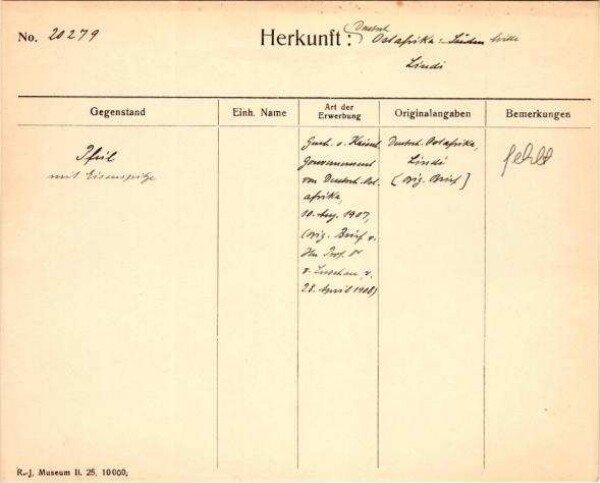 No. 20279
Herkunft: Deutsch Ostafrika: Süden
Lindi
Gegenstand
Einh. Name
Art der Erwerbung
Originalangaben
Bemerkungen
Pfeil
mit Eisenspitze
Gesch. v. Kaiserl.
Gouvernement
von Deutsch. Ost-
afrika,
10. Aug. 1907,
(orig. Brief v.
Hrn Prof. Dr
v. Luschan, v.
28. April 1908)
Deutsch. Ostafrika,
Lindi
(orig. Brief]
fehlt
R.-J. Museum II. 25. 10000.